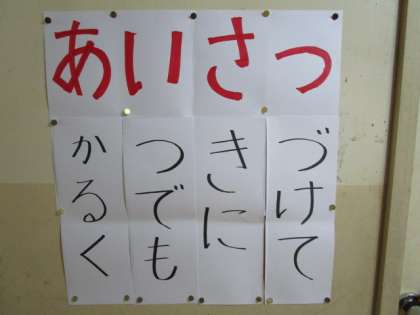 あいさつ
かるく
つでも
きに
づけて